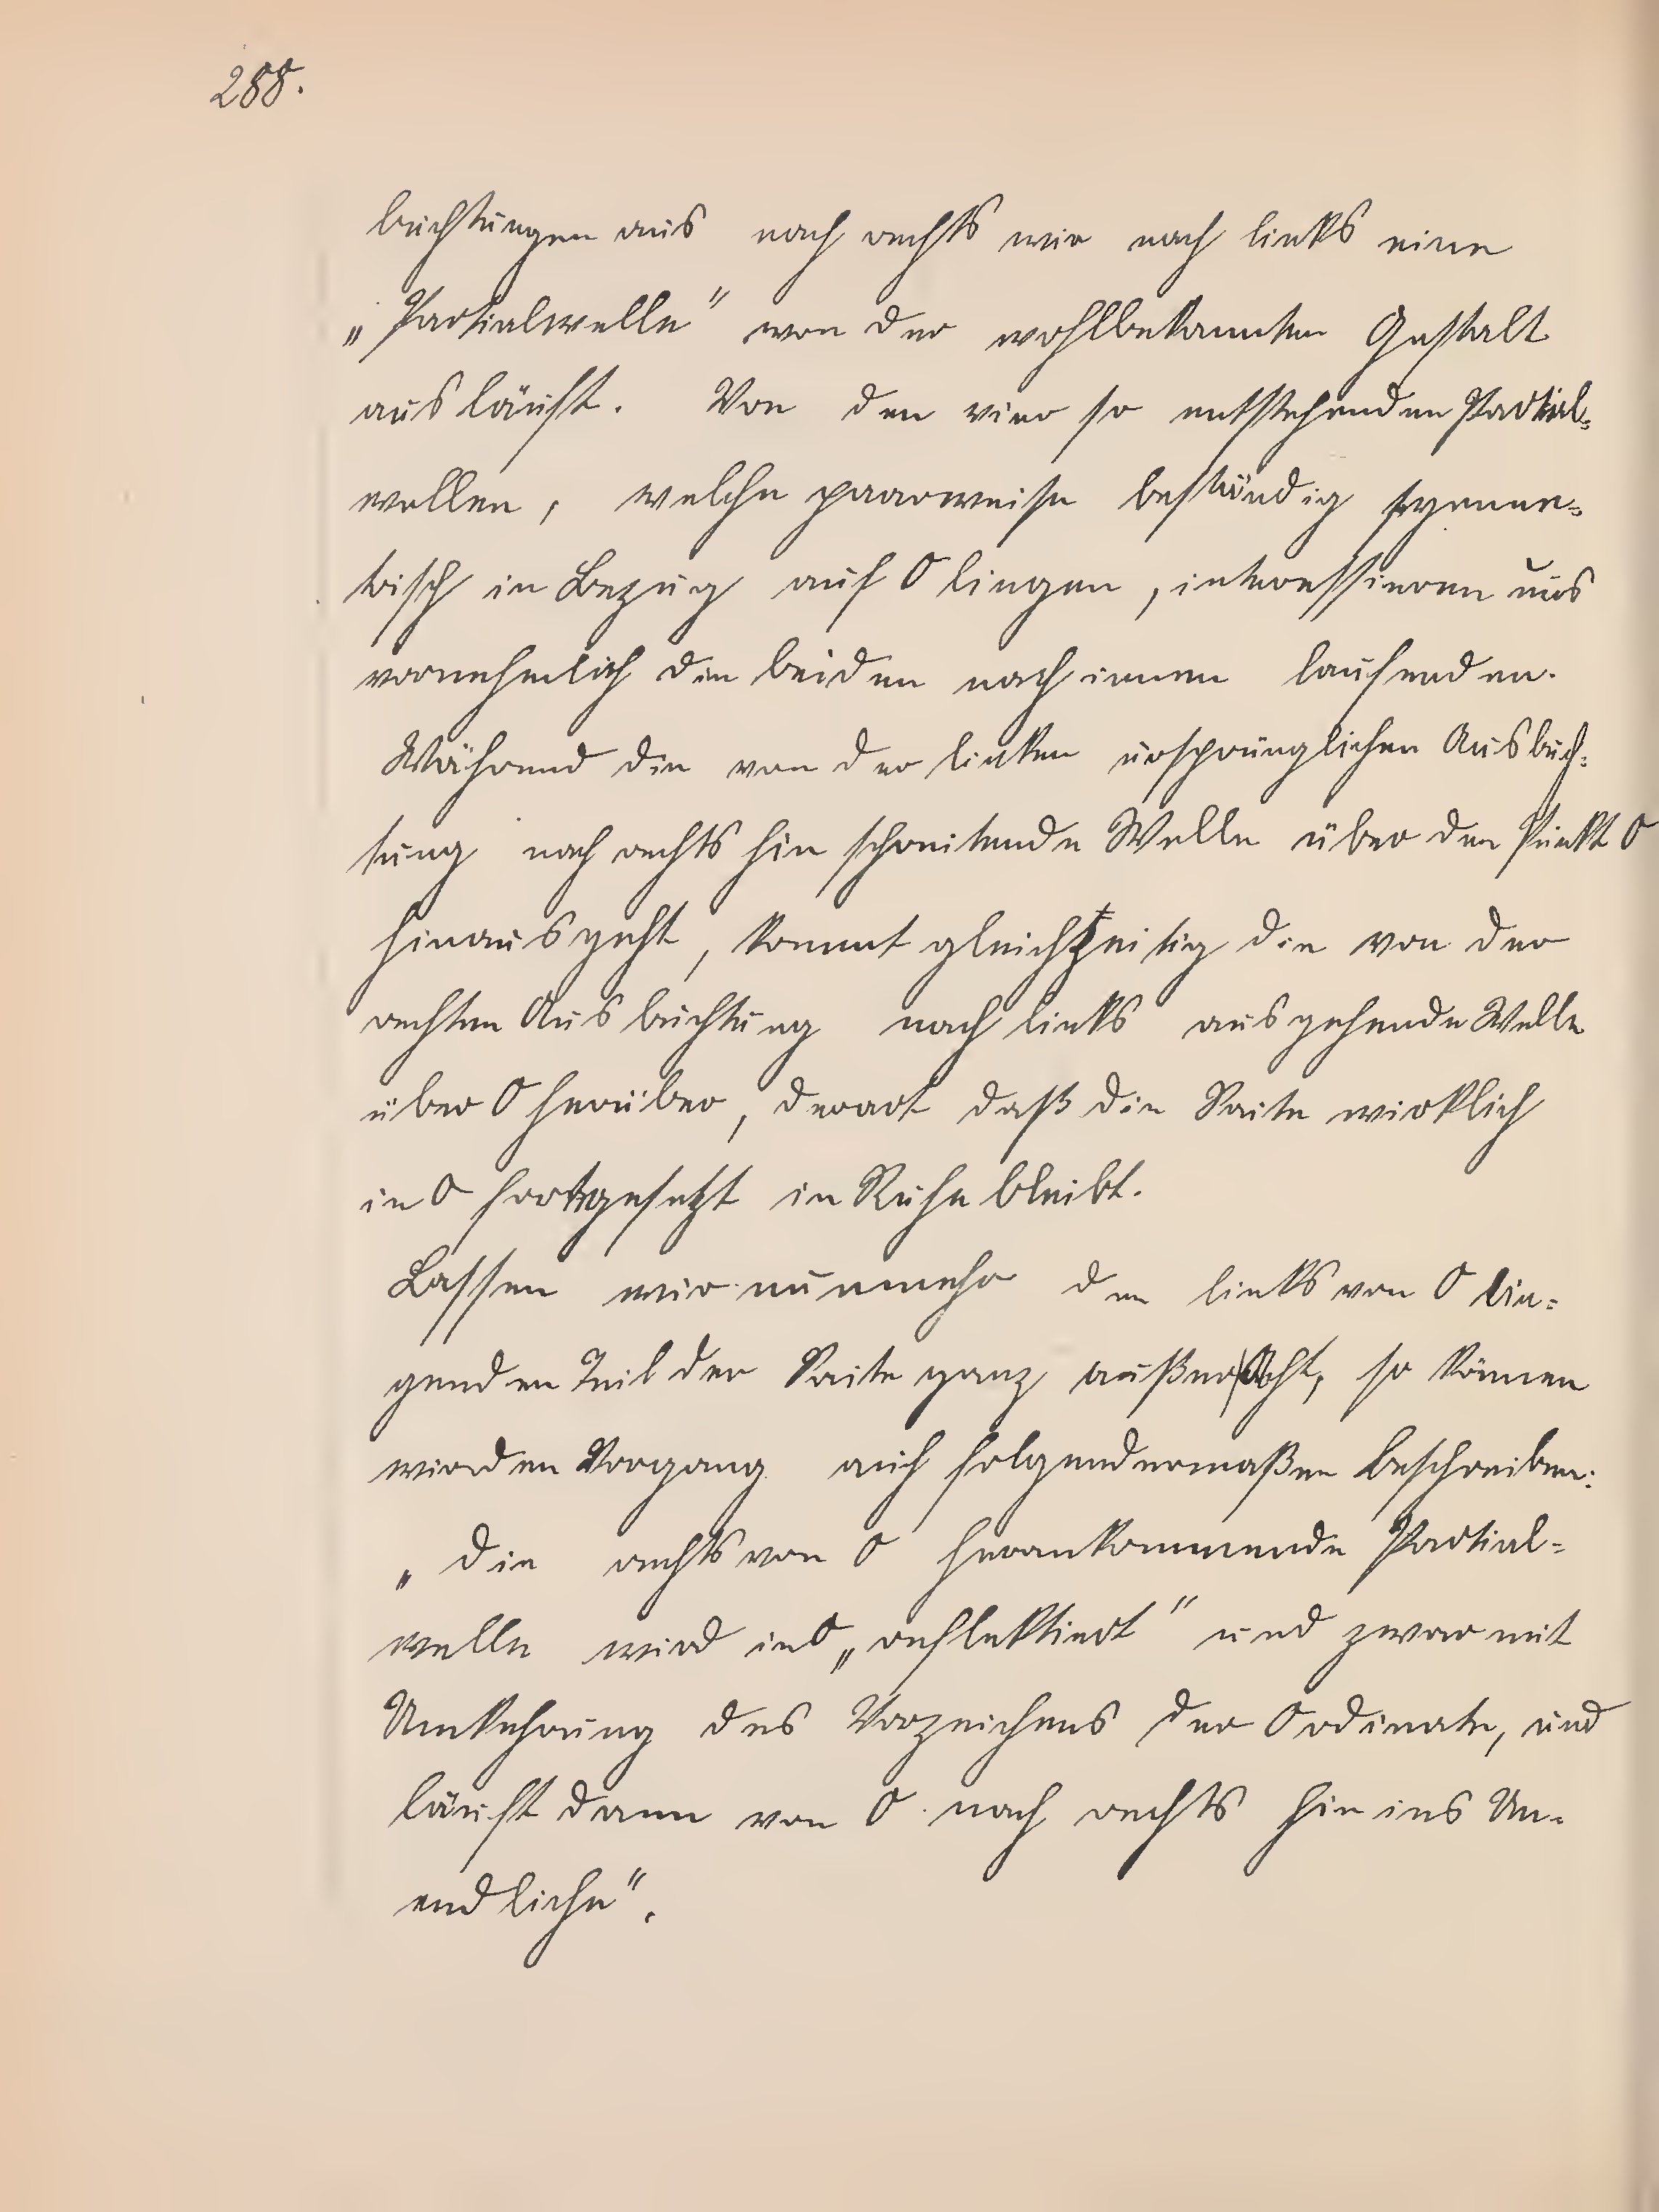 288.
buchtungen aus nach rechts wie nach links eine
„Partialwelle" von der wohlbekannten Gestalt
ausläuft. Von den vier so entstehenden Partial-
wellen, welche paarweise beständig symme-
trisch in Bezug auf O liegen, interessieren uns
vornehmlich die beiden nach innen laufenden.
Während die von der linken ursprünglichen Ausbuch-
tung nach rechts hin schreitende Welle über den Punkt O
hinausgeht, kommt gleichzeitig die von der
rechten Ausbuchtung nach links ausgehende Welle
über O herüber, derart daß die Saite wirklich
in O fortgesetzt in Ruhe bleibt.
Lassen wir nunmehr den links von O lie-
genden Teil der Saite ganz außer Acht, so können
wir den Vorgang auch folgendermaßen beschreiben:
„die rechts von O herankommende Partial-
welle wird in O „reflektiert" und zwar mit
Umkehrung des Vorzeichens der Ordinate, und
läuft dann von O nach rechts hin ins Un-
endliche".